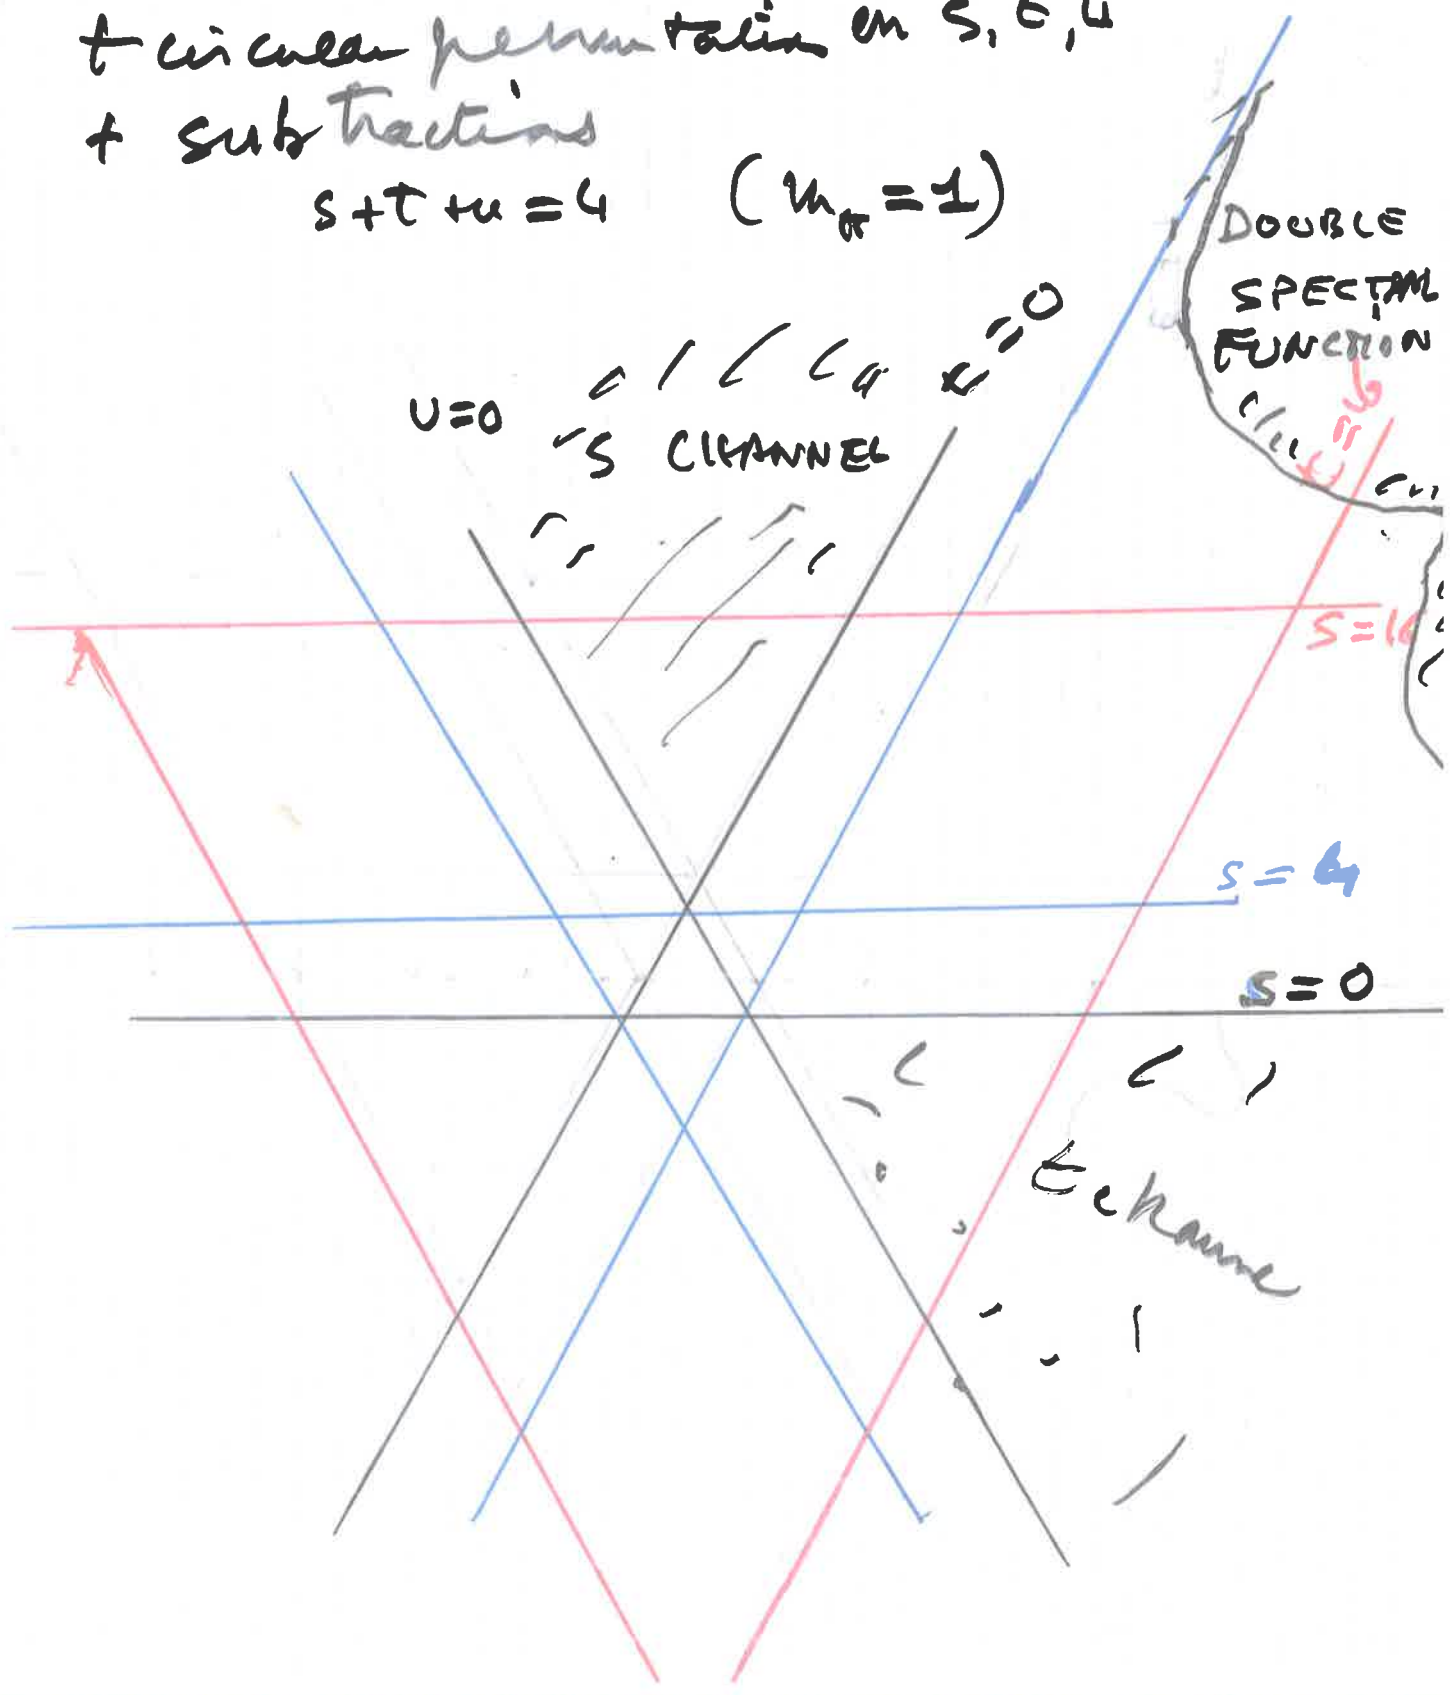 + circular permutation en s, t, u
+ subtractions
s+t+u=4 (m_π=1)
DOUBLE
SPECTRAL
FUNCTION
t=0
U=0
S CHANNEL
s=16
s=4
s=0
t channel